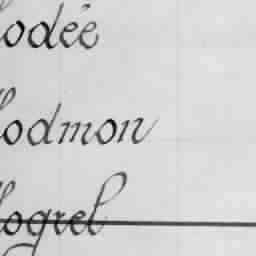 odée
odmon
ogrel